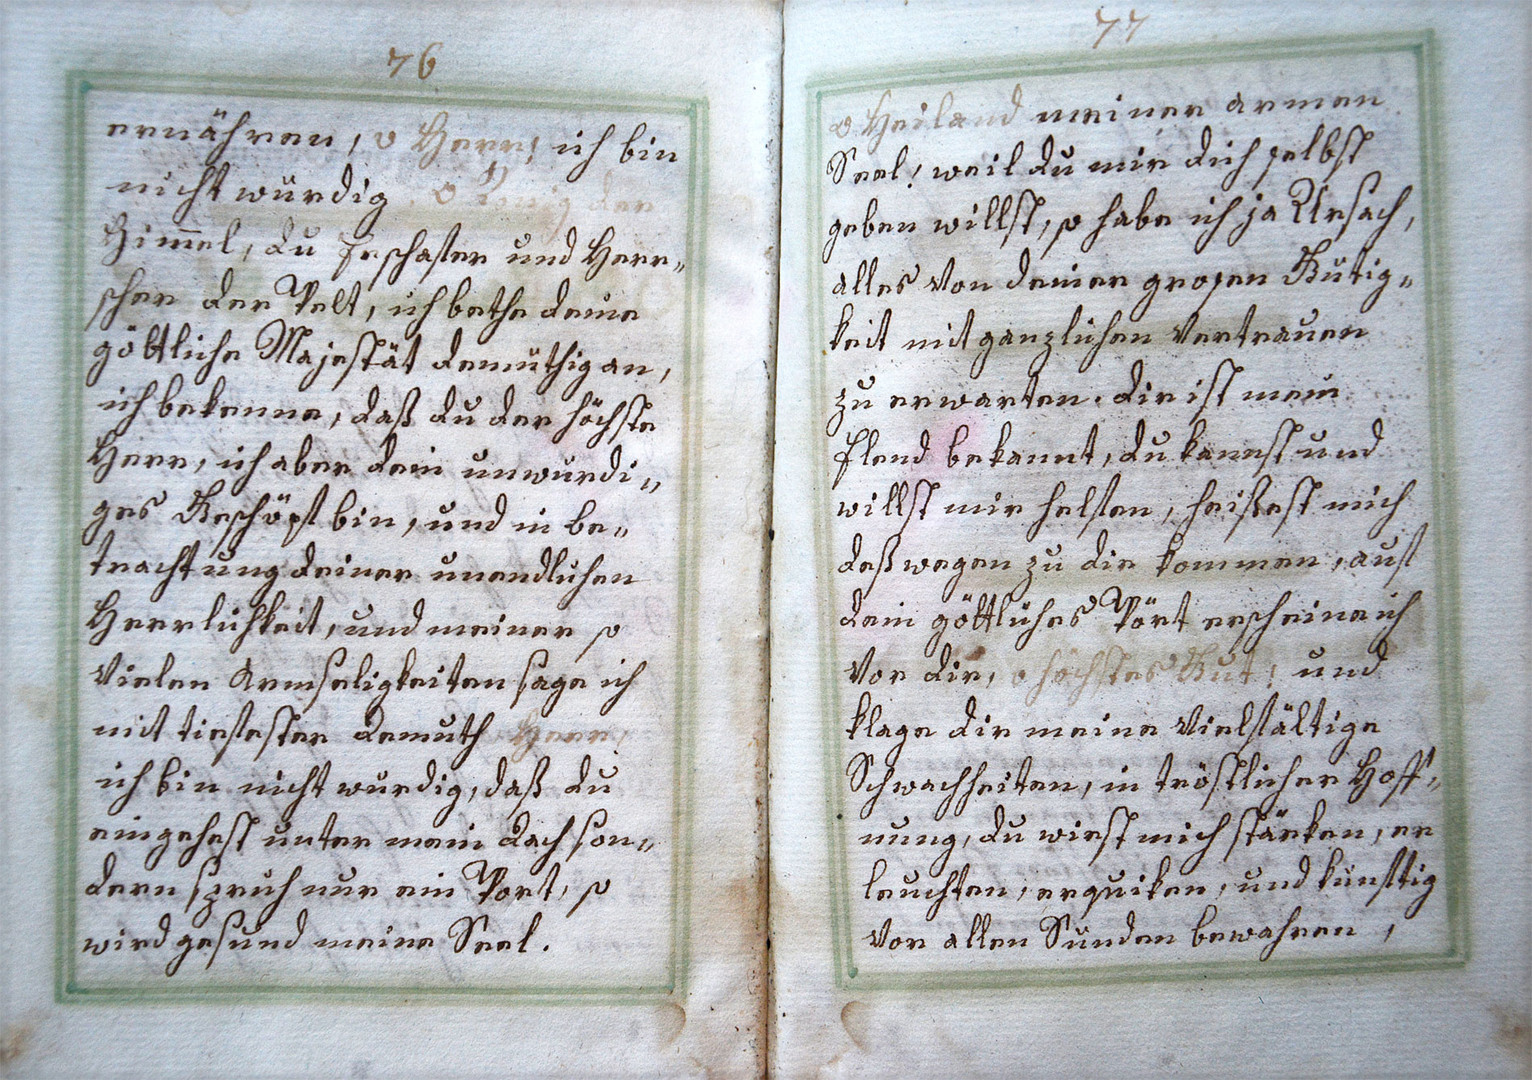 76
ernähren, o Herr, ich bin
nicht würdig. o König der
Himmel, du Erschaffer und Herr„
scher der Welt, ich bethe deine
göttliche Majestät demüthig an,
ich bekenne, daß du der höchste
Herr, ich aber dein unwürdi„
ges Geschöpf bin, und in be„
trachtung deiner unendlichen
Herrlichkeit, und meiner so
vielen Armseligkeiten sage ich
mit tiefester demuth Herr,
ich bin nicht würdig, daß du
eingehest unter mein dach son„
dern sprich nur ein Wort, so
wird gesund meine Seel.
77
o Heiland meiner armen
Seel! weil du mir dich selbst
geben willst, so habe ich ja Ursach,
alles von deiner grosen Gütig„
keit mit gänzlichen Vertrauen
zu erwarten. dir ist mein
Elend bekannt, du kannst und
willst mir helfen, heißest mich
deßwegen zu dir kommen, auf
dein göttliches Wort erscheine ich
vor dir, o höchstes Gut! und
klage dir meine vielfältige
Schwachheiten, in tröstlicher Hoff„
nung, du wirst mich stärken, er
leuchten, erquiken, und künftig
vor allen Sünden bewahren,